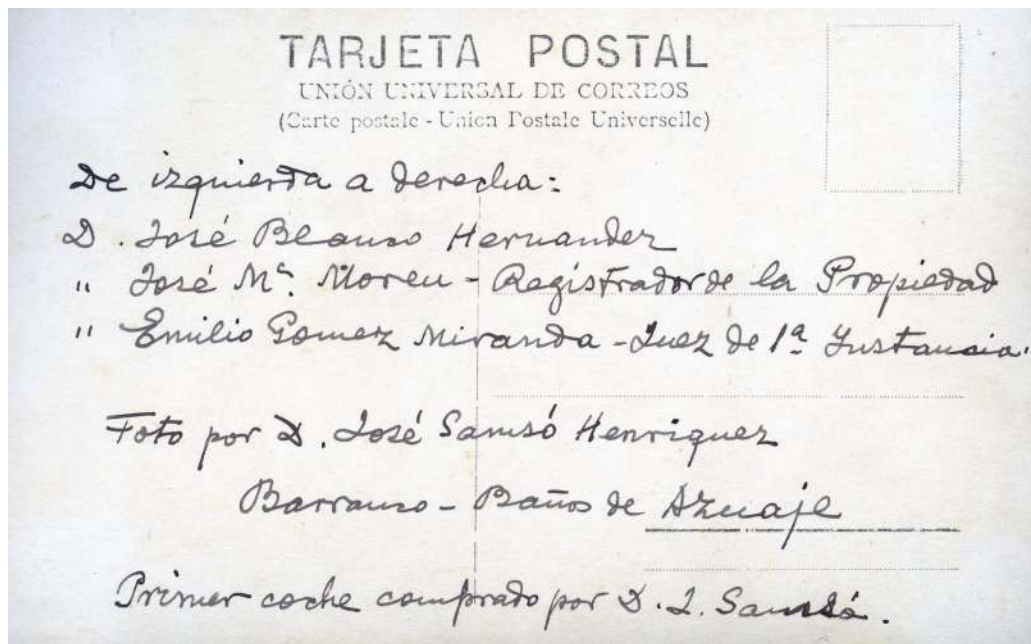 TARJETA POSTAL
UNIÓN UNIVERSAL DE CORREOS
(Carte postale - Union Postale Universelle)
De izquierda a derecha:
D. José Blanco Hernandez
" José Mª. Moreu - Registrador de la Propiedad
" Emilio Gomez Miranda - Juez de 1ª Instancia.
Foto por D. José Samsó Henriquez
Barranco - Baños de Azuaje
Primer coche comprado por D. J. Samsó.